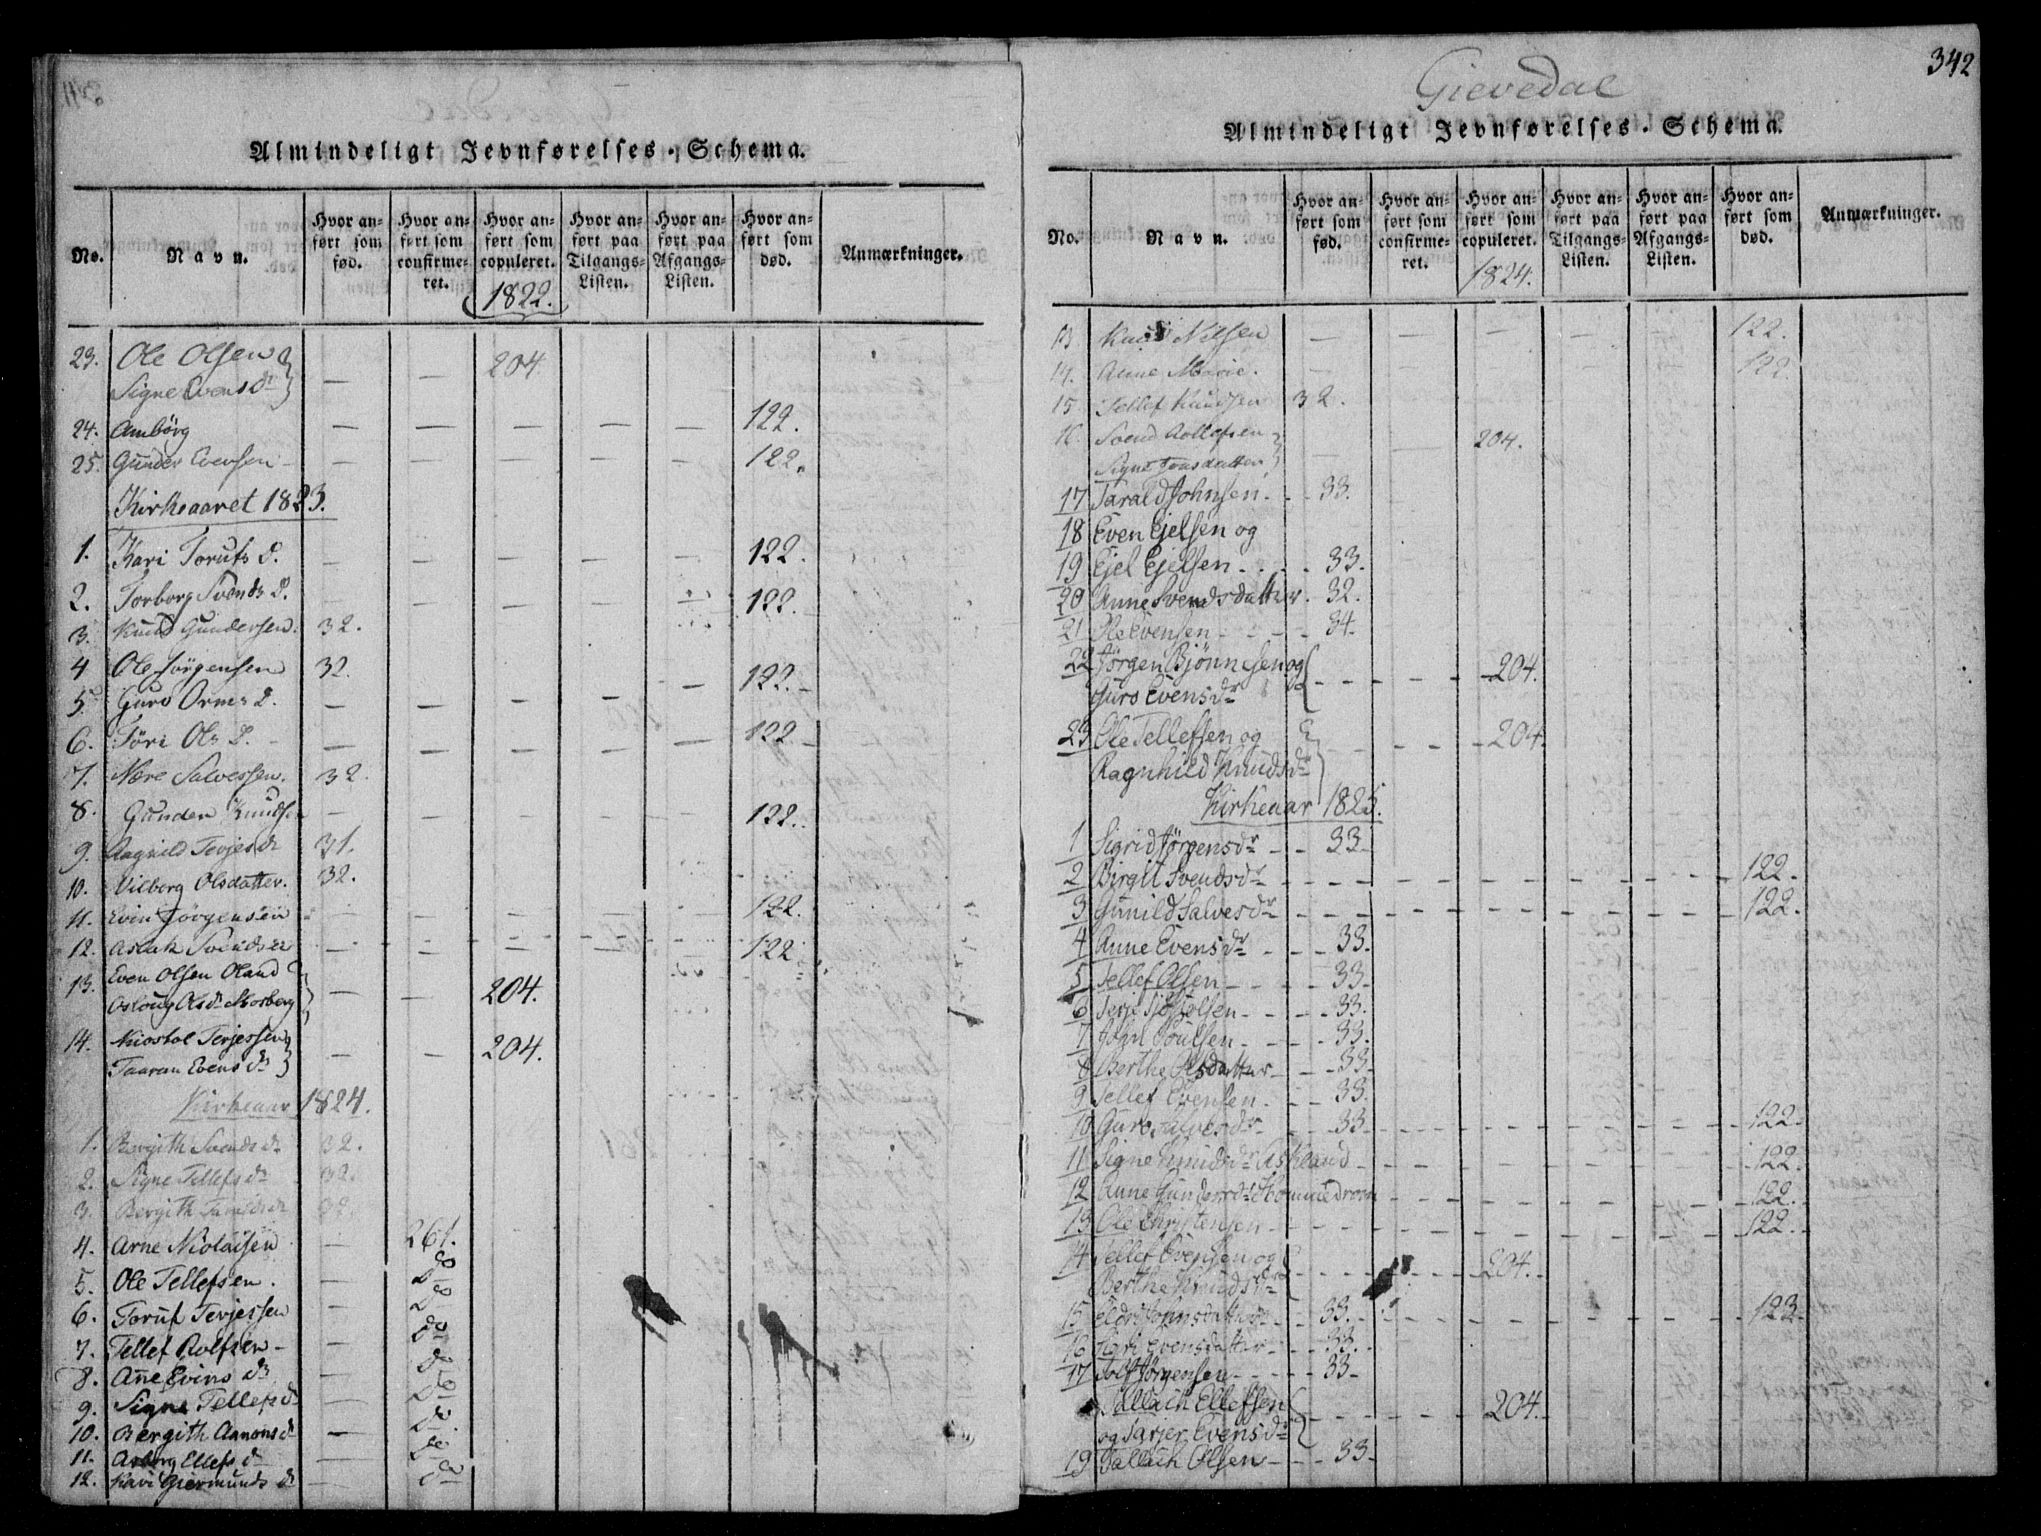 Almindeligt Jevnførelses-Schema.
No. Navn. Hvor anført som fød. Hvor anført som confirmeret. Hvor anført som copuleret. Hvor anført paa Tilgangs-Listen. Hvor anført paa Afgangs-Listen. Hvor anført som død. Anmærkninger.
1822.
23. Ole Olsen
Signe Evensdr — — 204
24. Anbörg — — — — — 122.
25. Gunder Evensen — — — — — 122.
Kirkeaaret 1823.
1. Kari Torufs D. — — — — — 122.
2. Torborg Svends D. — — — — — 122.
3. Knud Gundersen. 32.
4 Ole Jörgensen 32.
5. Guro Orms D. — — — — — 122.
6. Töri Ols D. — — — — — 122
7. Nære Salvessen. 32.
8. Gunder Knudsen — — — — — 122.
9. Ragnild Terjesdr 31.
10. Vilborg Olsdatter. 32.
11. Evin Jörgensen — — — — — 122.
12. Aslak Svendsen — — — — — 122
13. Even Olsen Oland
Aslaug Olsdr — — 204.
14. Terjessen
Taaran Evensdr — — 204.
Kirkeaar 1824.
1. Bergith Svendsdr 32.
2. Signe Tellefsdr 32.
3. Bergith 32.
4. Arne Nicolaisen — 261.
5. Ole Tellefsen. — do
6. Toruf Terjessen — do
7. Tellef Rolfsen — do
8. Ane Evins dr — do
9. Signe Tellefs d — do
10. Bergith Aanons d — do
11. Asborg Ellefs d — do
12. Kari Giermunds d — do
342
Gievedal
Almindeligt Jevnførelses-Schema.
No. Navn. Hvor anført som fød. Hvor anført som confirmeret. Hvor anført som copuleret. Hvor anført paa Tilgangs-Listen. Hvor anført paa Afgangs-Listen. Hvor anført som død. Anmærkninger.
1824.
13 Knud Nilsen — — — — — 122.
14. Anne Marie. — — — — — 122.
15. Tellef Knudsen 32.
16. Svend
Signe Jonsdatter — — 204.
17 Tarald Johnsen. 33.
18 Even Ejelsen og
19 Ejel Ejelsen 33.
20 Anne Svendsdatter. 32.
21 Ole Evensen 34
22 Jörgen Bjönnesen og
Guro Evensdr 204.
23 Ole Tellefsen og 204.
Ragnhild Knudsdr
Kirkeaar 1825.
1 Sigrid Jörgensdr 33
2 Birgit Svendsdr 122.
3 Gunild Salvesdr 122.
4 Anne Evensdr 33.
5 Tellef Olsen 33.
6 Terje 33.
7 John Poulsen 33.
8 Berthe Olsdatter 33
9 Tellef Evensen 33.
10 Guro Salvesdr 33 122.
11 Signe Knudsdr Askland 122.
12 Anne Gundersdr Hommedrom 122.
13 Ole Christensen 122.
14 Tellef Evensen og
Berthe Knudsdr 204.
15 Eldri Johnsdatter 33. 123.
16 Kari Evensdatter 33.
17 Jörgensen 33
Tallach Ellefsen
og Tarjer Evensdr 204.
19 Tallach Olsen 33